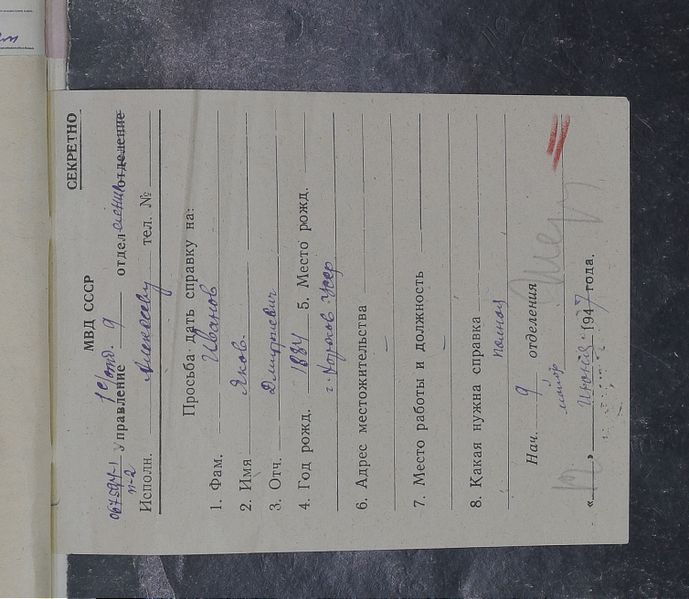 СЕКРЕТНО
МВД СССР
1 с/отд.
067594-1 управление 9 отделение
п-2
Исполн. Алексееву тел. №
Просьба дать справку на:
1. Фам. Иванов
2. Имя Яков
3. Отч. Дмитриевич
4. Год рожд. 1884 5. Место рожд.
г. УССР
6. Адрес местожительства —
7. Место работы и должность —
8. Какая нужна справка
полная
Нач. 9 отделения
майор
« » июня 1947 года.